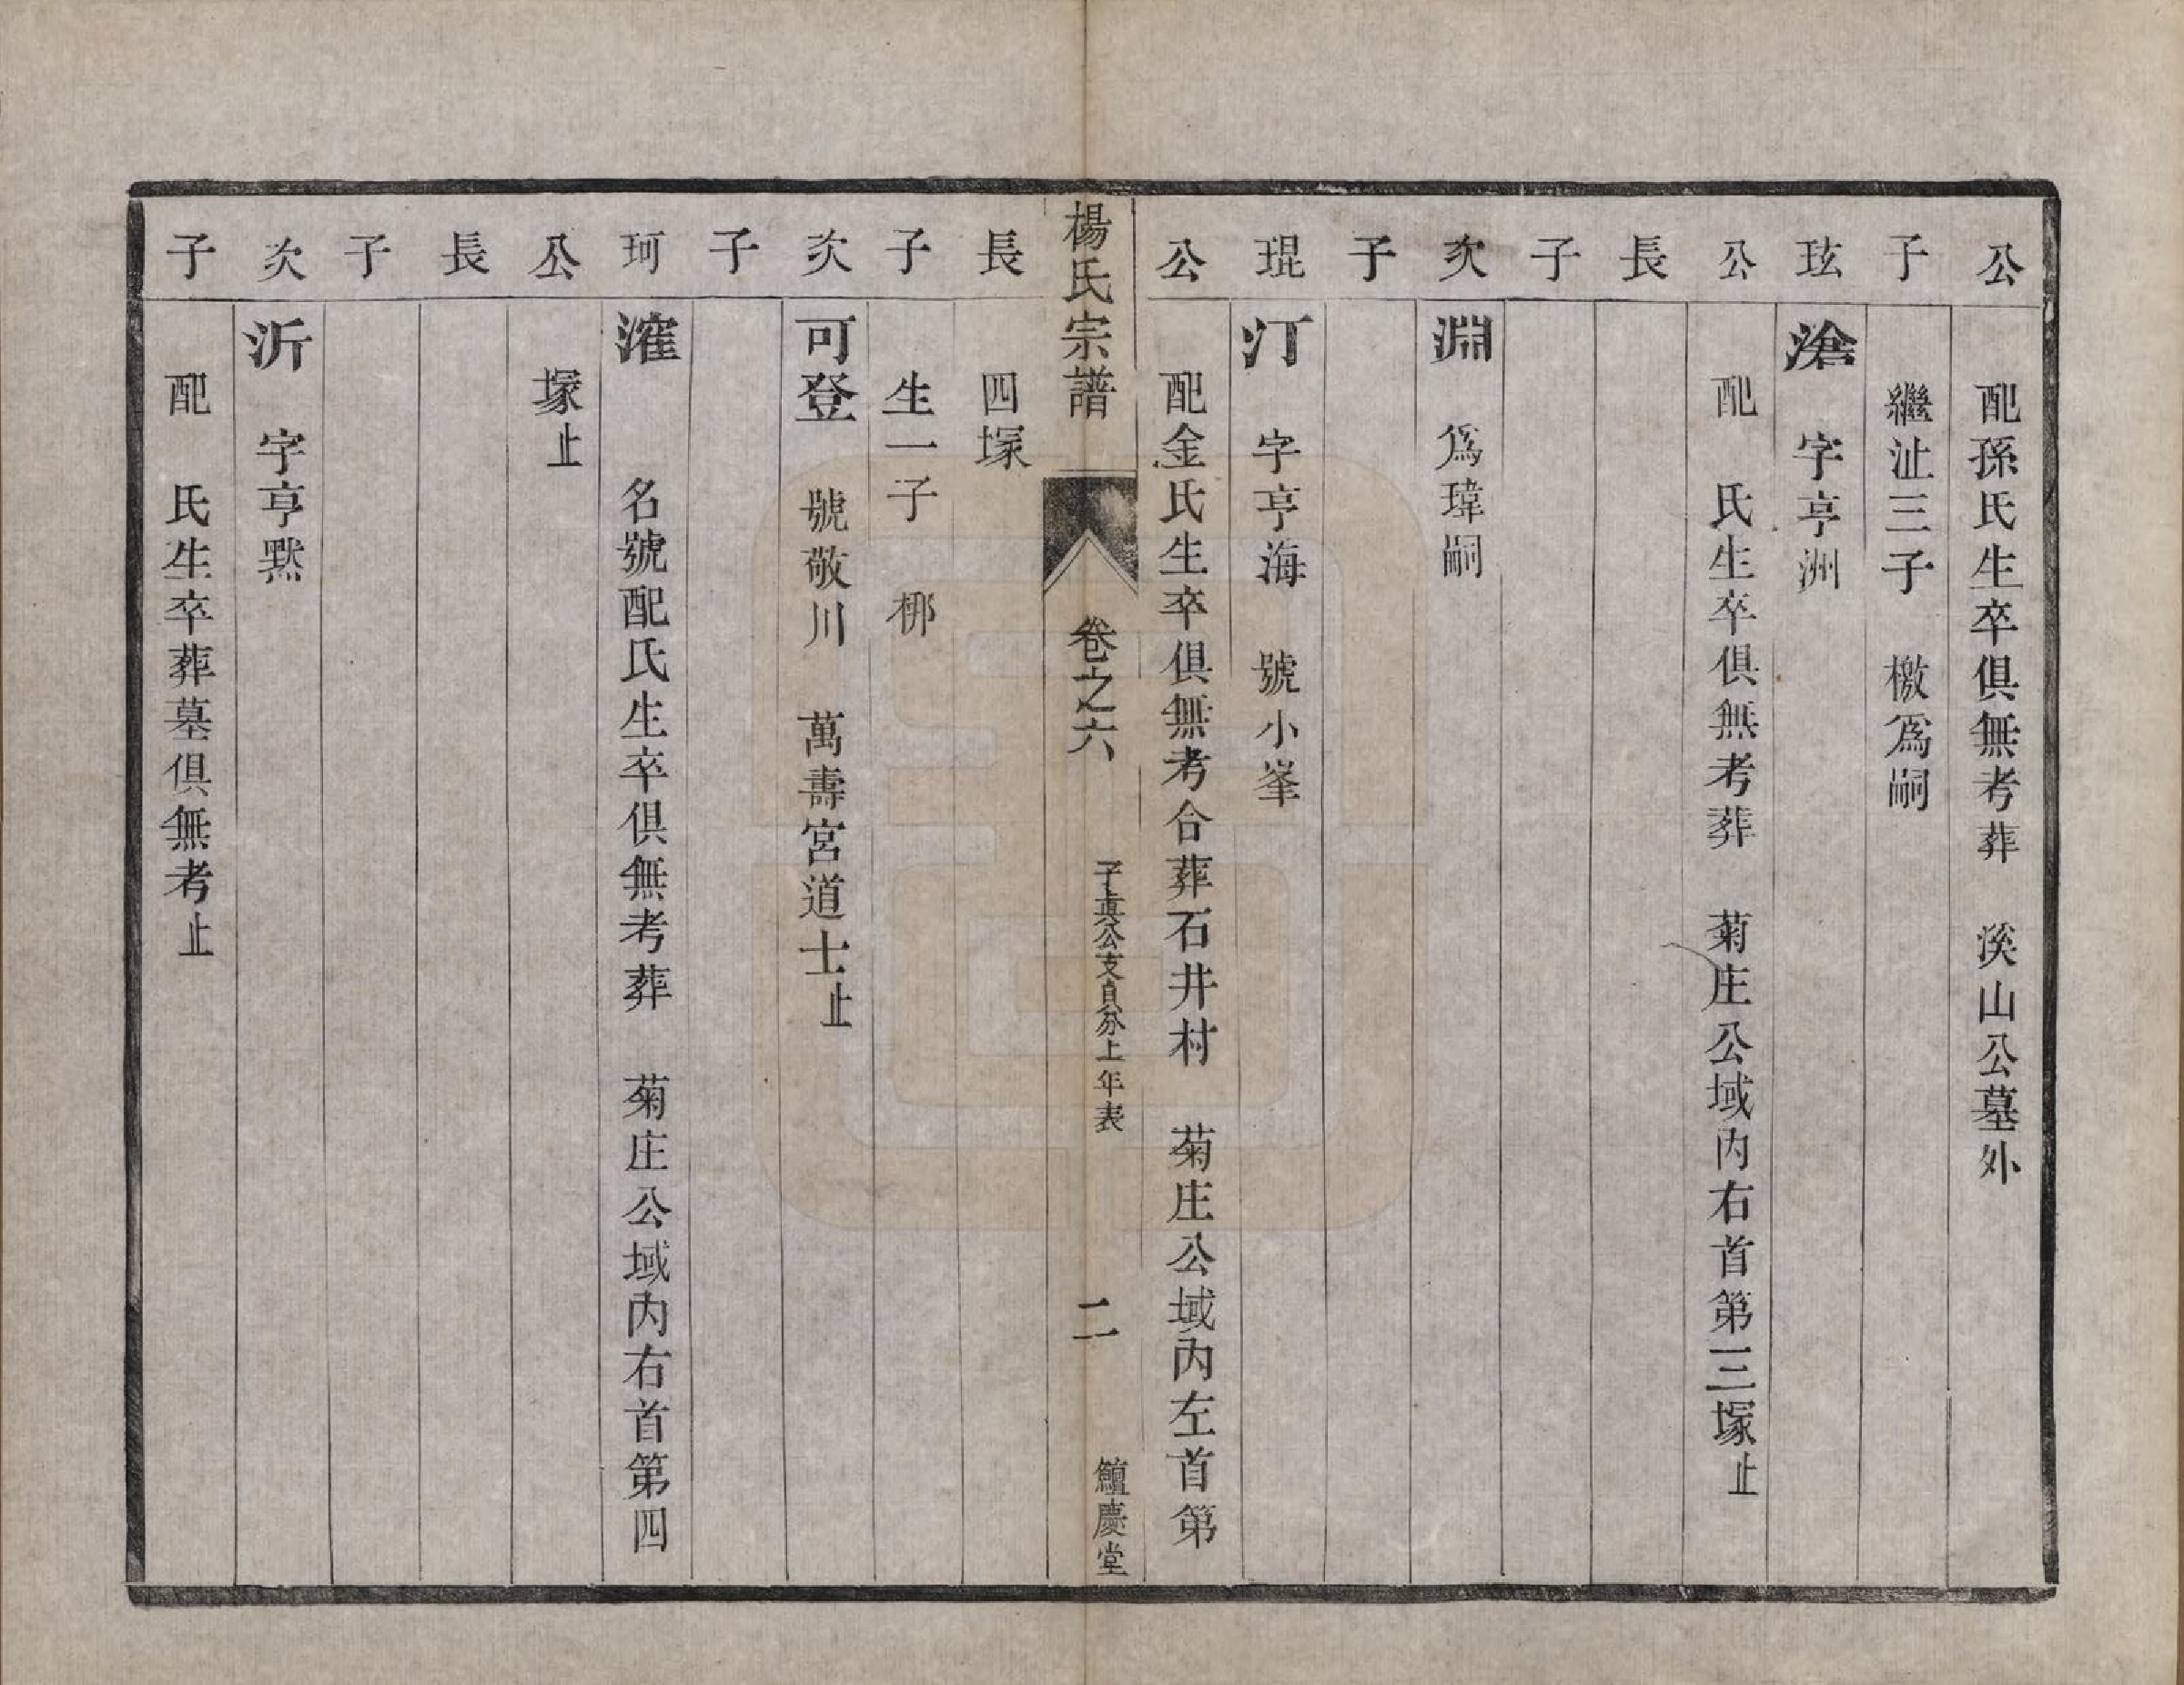 公　配孫氏生卒俱無考葬　溪山公墓外
子　繼沚三子　檄爲嗣
玹　滄　字亨洲
公　配　氏生卒俱無考葬　菊庄公域内右首第三塚止
長
子
次　淵　爲瑋嗣
子
琨　汀　字亨海　號小峯
公　配金氏生卒俱無考合葬石井村　菊庄公域内左首第
楊氏宗譜　卷之六　子真公支貞分上年表　二　鱣慶堂
長　四塚
子　生一子　梛
次　可登　號敬川　萬壽宮道士止
子
珂　漥　名號配氏生卒俱無考葬　菊庄公域内右首第四
公　塚止
長
子
次　沂　字亨黙
子　配　氏生卒葬墓俱無考止